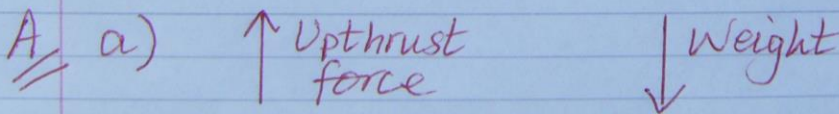 A a) ↑ Upthrust force ↓ Weight